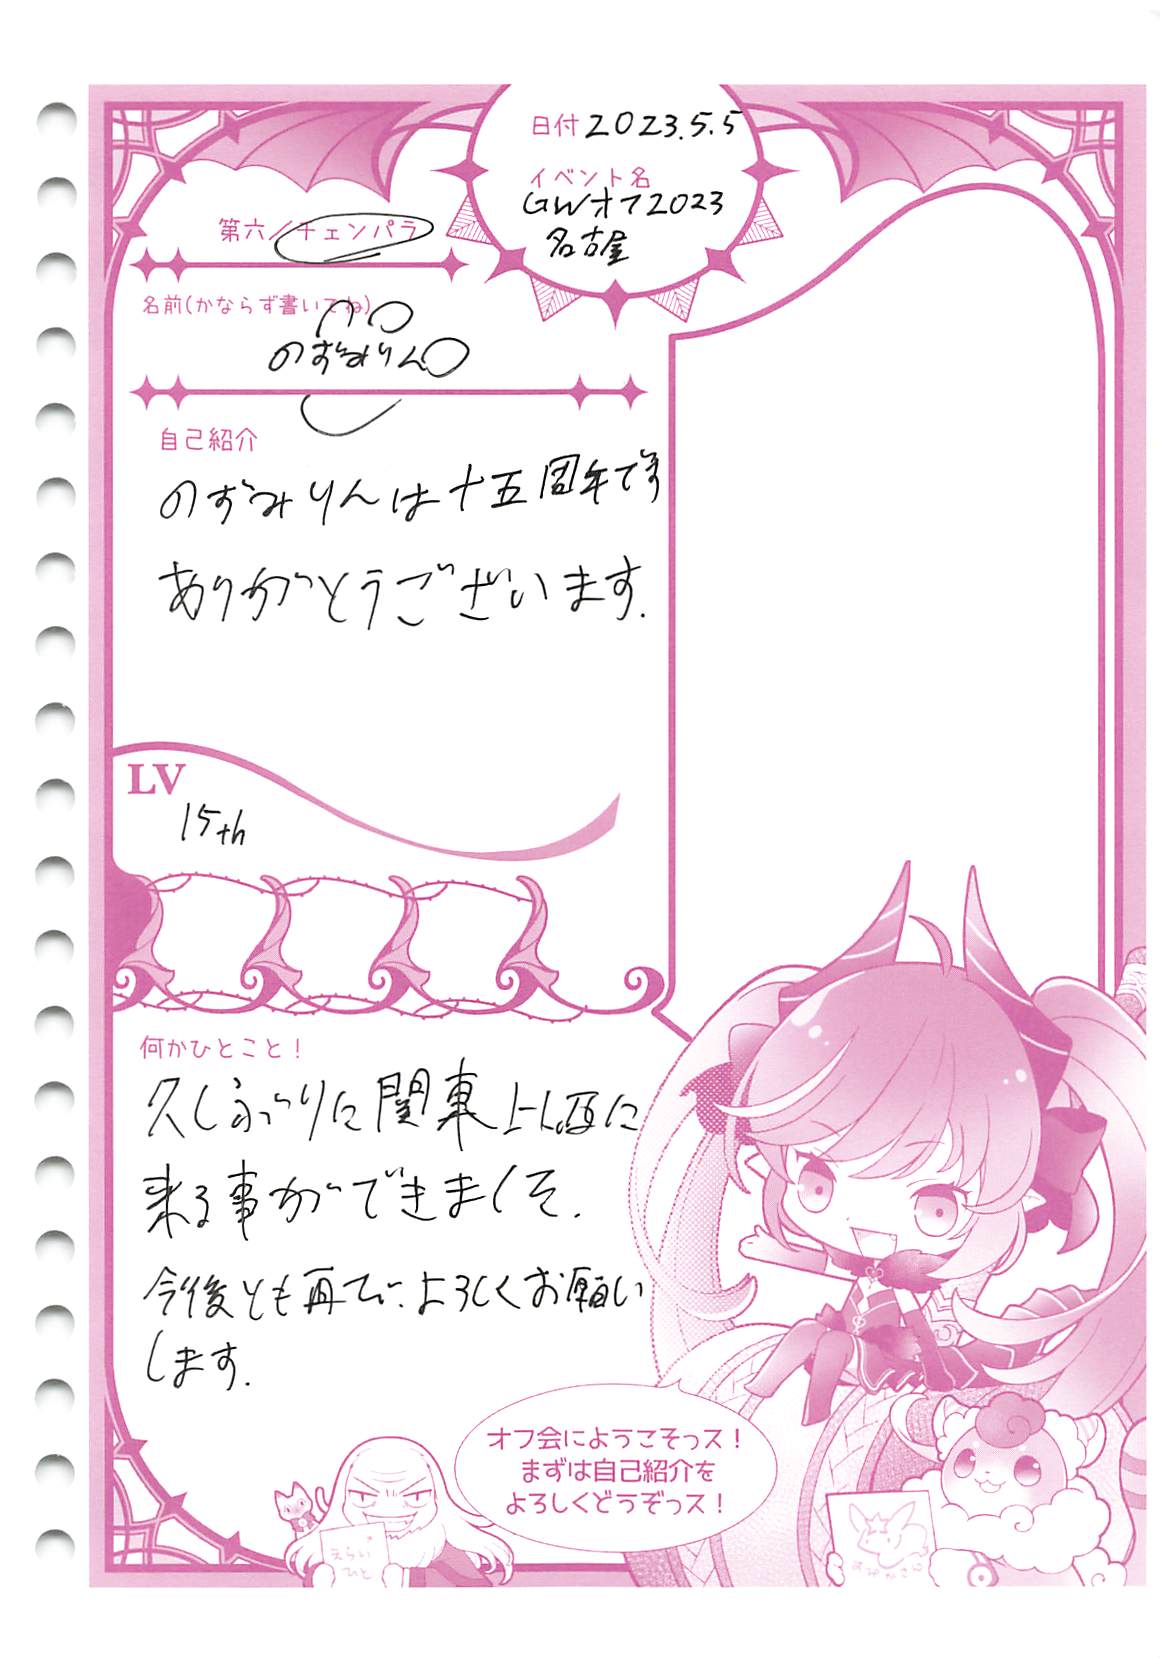 日付 2023.5.5
イベント名
GWオフ2023
名古屋
第六/チェンパラ
名前(かならず書いてね)
のずみりん
自己紹介
のずみりんは十五周年です
ありがとうございます.
LV
15th
何かひとこと!
久しぶりに関東以西に
来る事ができました.
今後とも再び、よろしくお願い
します.
オフ会にようこそっス!
まずは自己紹介を
よろしくどうぞっス!
えらい
ひと